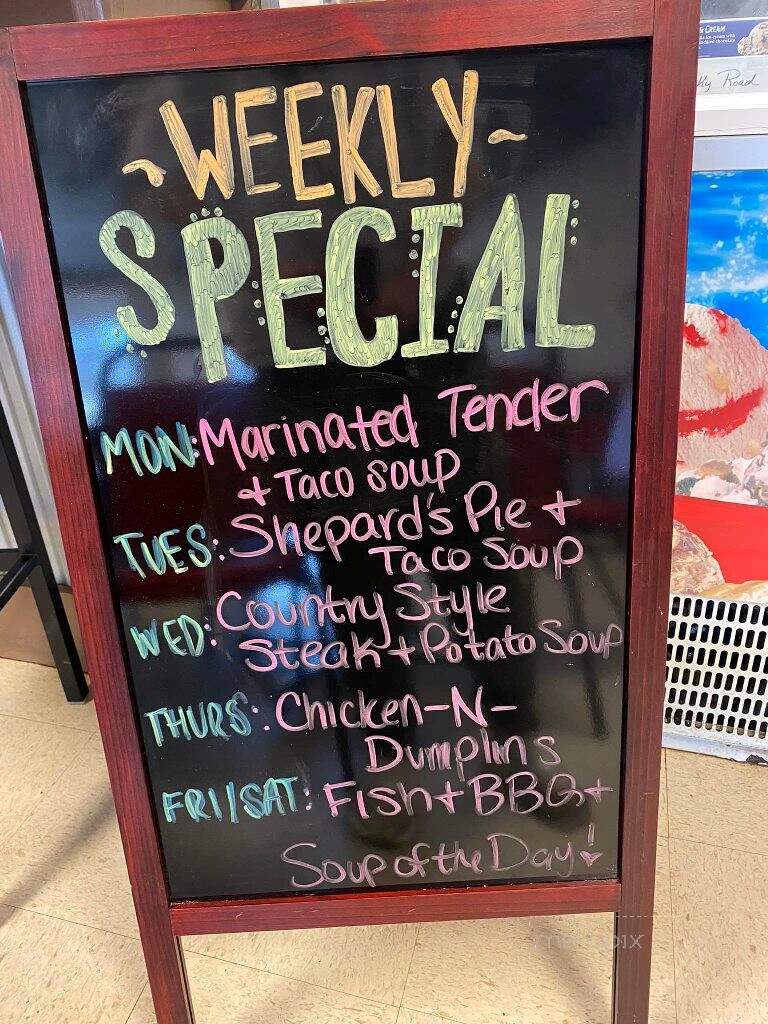 & CREAM
ky Road
~WEEKLY~
SPECIAL
MON: Marinated Tender
+ Taco Soup
TUES: Shepard's Pie +
Taco Soup
WED: Country Style
Steak + Potato Soup
THURS: Chicken-N-
Dumplins
FRI/SAT: Fish + BBQ +
Soup of the Day!